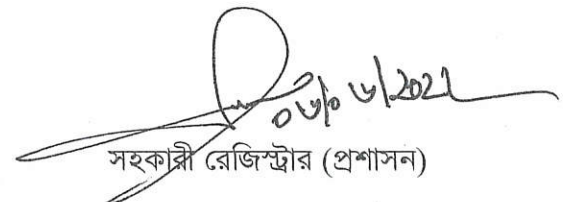 ০৬/০৬/২০২১
সহকারী রেজিস্ট্রার (প্রশাসন)